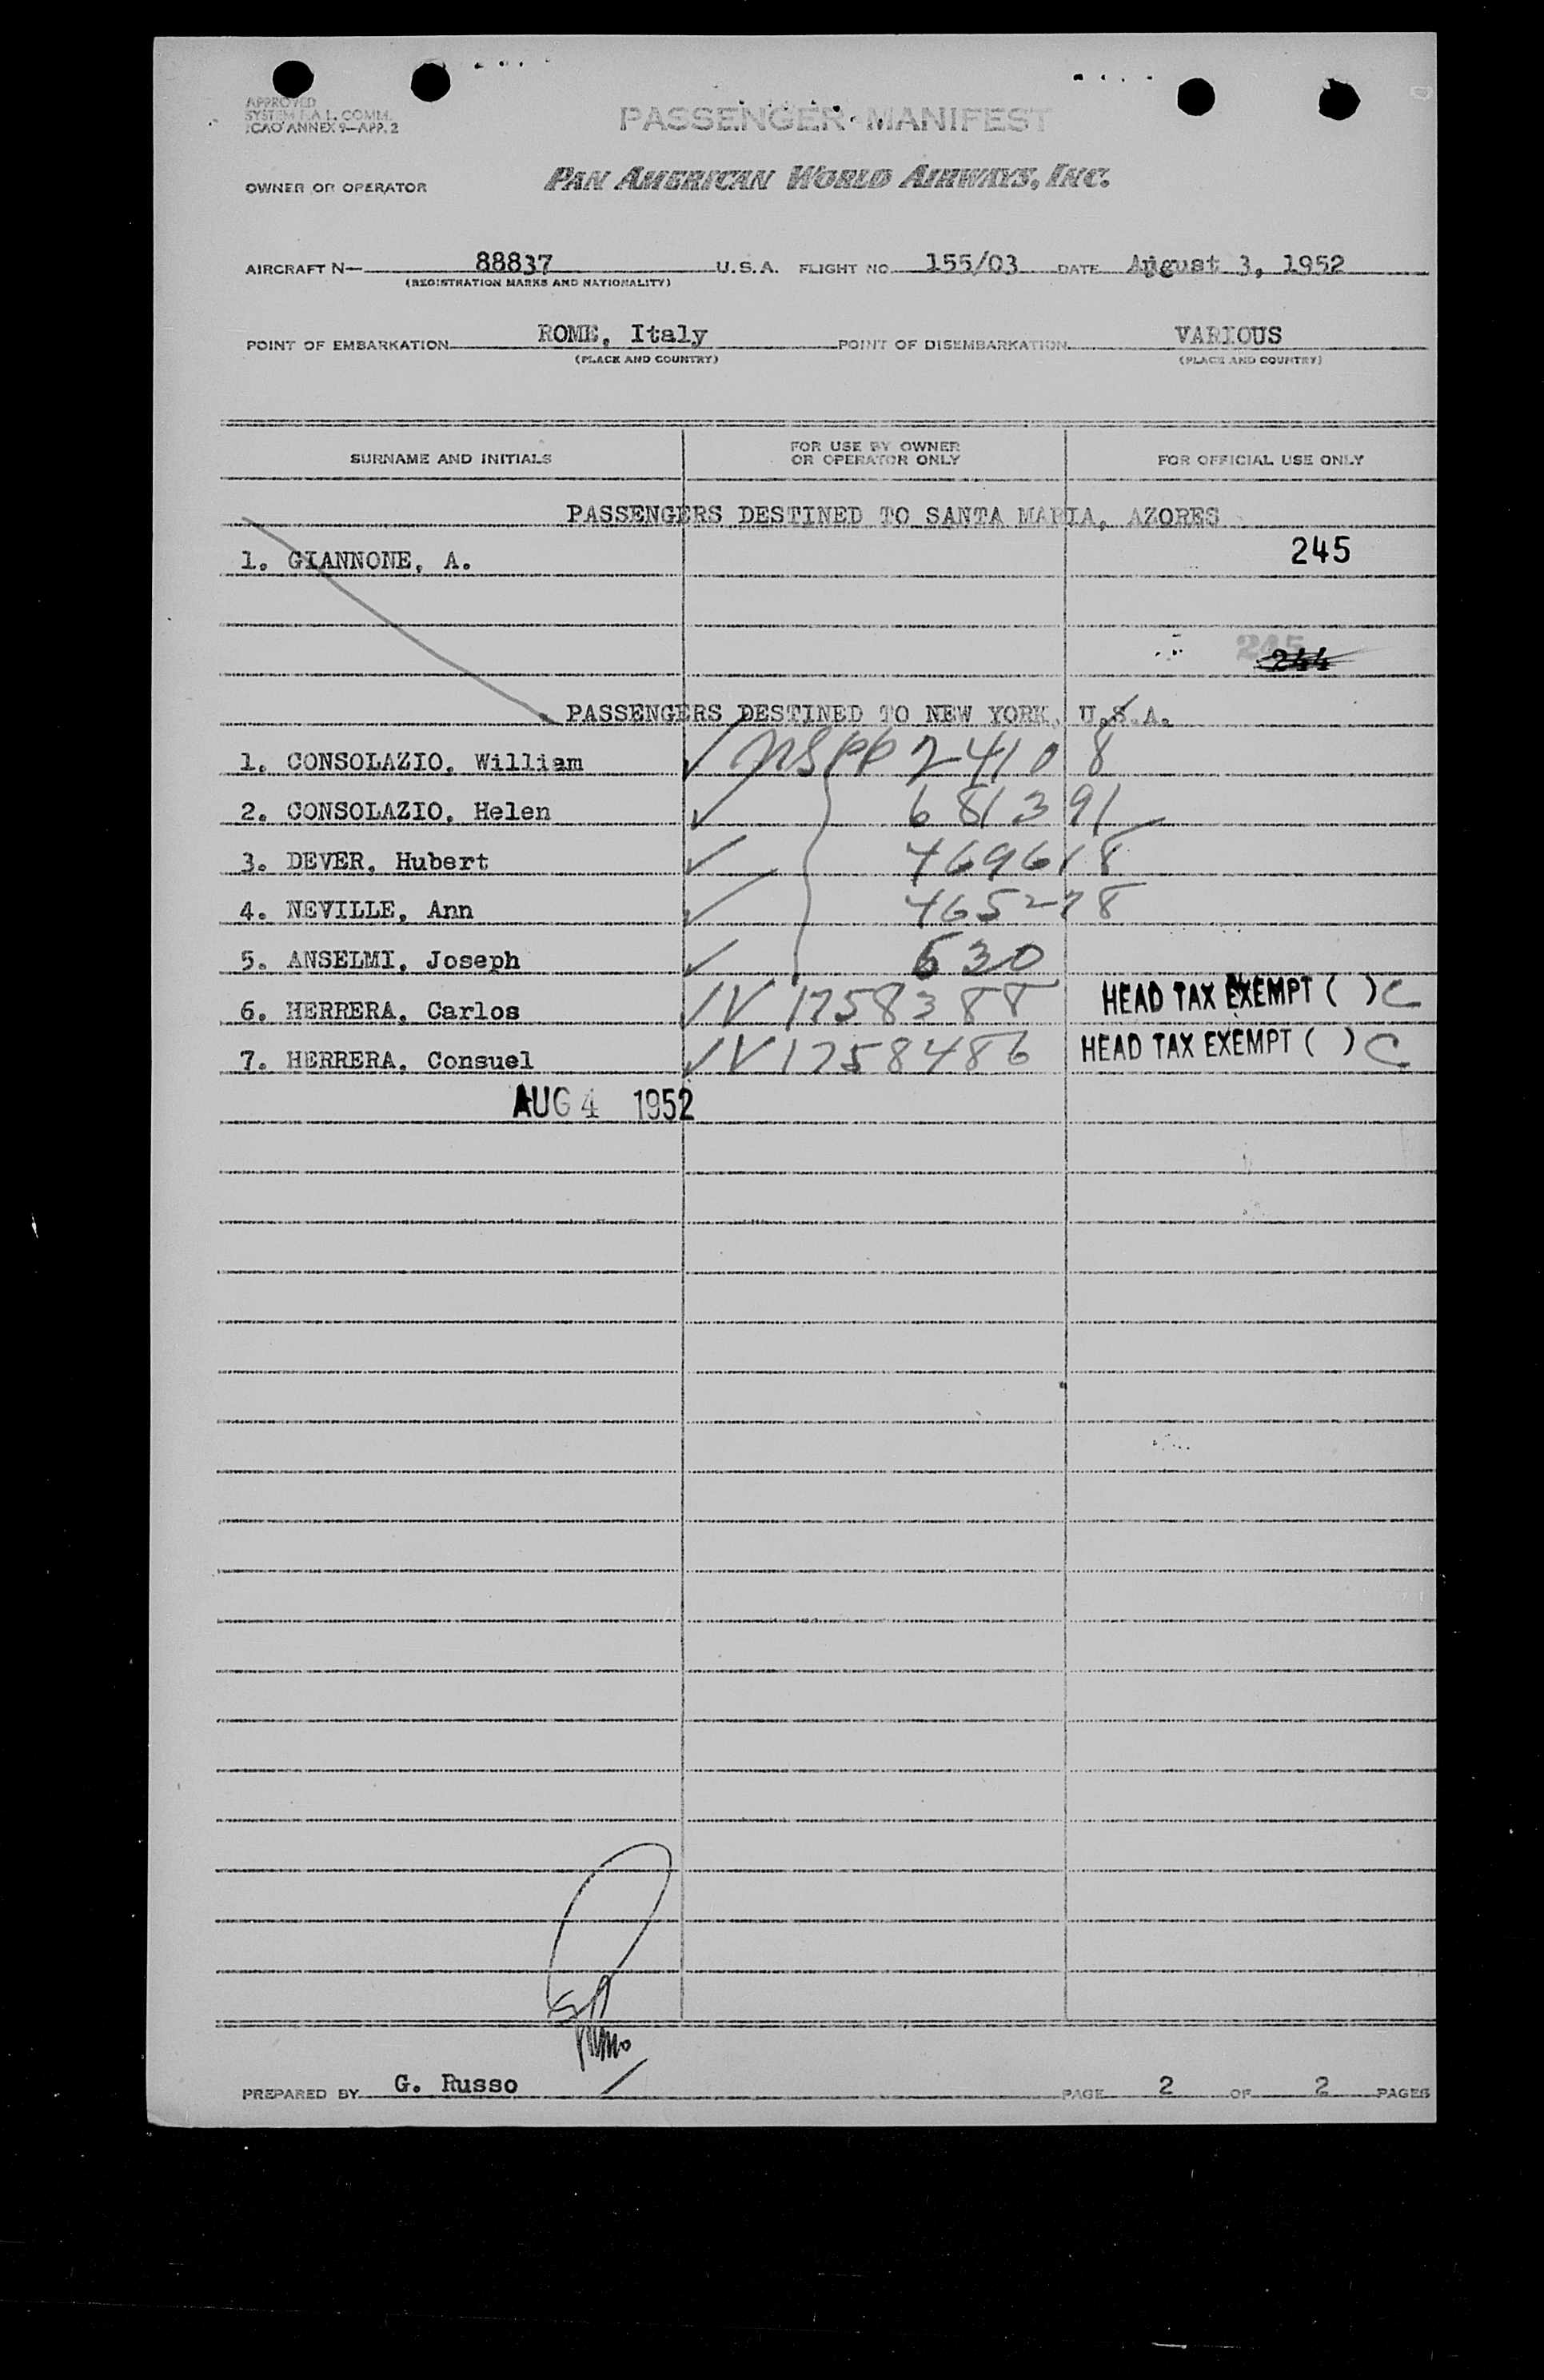 APPROVED
SYSTEM F.A.L. COMM.
ICAO ANNEX 9—APP. 2
PASSENGER MANIFEST
OWNER OR OPERATOR PAN AMERICAN WORLD AIRWAYS, INC.
AIRCRAFT N— 88837 U.S.A. FLIGHT NO. 155/03 DATE August 3, 1952
(REGISTRATION MARKS AND NATIONALITY)
POINT OF EMBARKATION ROME, Italy POINT OF DISEMBARKATION VARIOUS
(PLACE AND COUNTRY) (PLACE AND COUNTRY)
SURNAME AND INITIALS FOR USE BY OWNER OR OPERATOR ONLY FOR OFFICIAL USE ONLY
PASSENGERS DESTINED TO SANTA MARIA, AZORES
1. GIANNONE, A. 245
245
244
PASSENGERS DESTINED TO NEW YORK, U.S.A.
1. CONSOLAZIO, William ✓ USPP 24108
2. CONSOLAZIO, Helen ✓ 681391
3. DEVER, Hubert ✓ 469618
4. NEVILLE, Ann ✓
5. ANSELMI, Joseph ✓ 630
6. HERRERA, Carlos ✓ IV 1758388 HEAD TAX EXEMPT ( ) C
7. HERRERA, Consuel ✓ IV 1758486 HEAD TAX EXEMPT ( ) C
AUG 4 1952
PREPARED BY G. Russo PAGE 2 OF 2 PAGES